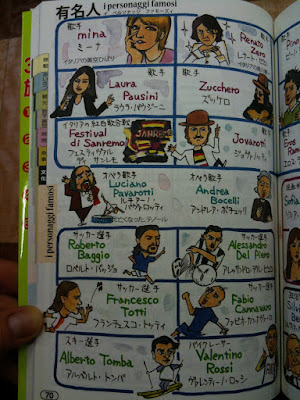 有名人
i personaggi famosi
ペルソナッジ ファモーズィ
mina
ミーナ
イタリアの美空ひばり
歌手
Renato
Zero
歌手
Laura
Pausini
ラウラ・パウジーニ
歌手
Zucchero
ズッケロ
イタリアの紅白歌合戦
Festival
di Sanremo
フェスティヴァル
ディ サンレモ
SANREMO
歌手
Jovanotti
オペラ歌手
Luciano
Pavarotti
ルチアーノ
パヴァロッティ
オペラ歌手
Andrea
Bocelli
アンドレア・ボチェッリ
サッカー選手
Roberto
Baggio
ロベルト・バッジョ
サッカー選手
Alessandro
Del Piero
アレッサンドロ・デル・ピエロ
サッカー選手
Francesco
Totti
フランチェスコ・トッティ
サッカー選手
Fabio
Cannavaro
ファビオ・カンナヴァーロ
スキー選手
Alberto Tomba
アルベルト・トンバ
バイクレーサー
Valentino
Rossi
ヴァレンティーノ・ロッシ
文化
i personaggi famosi
70